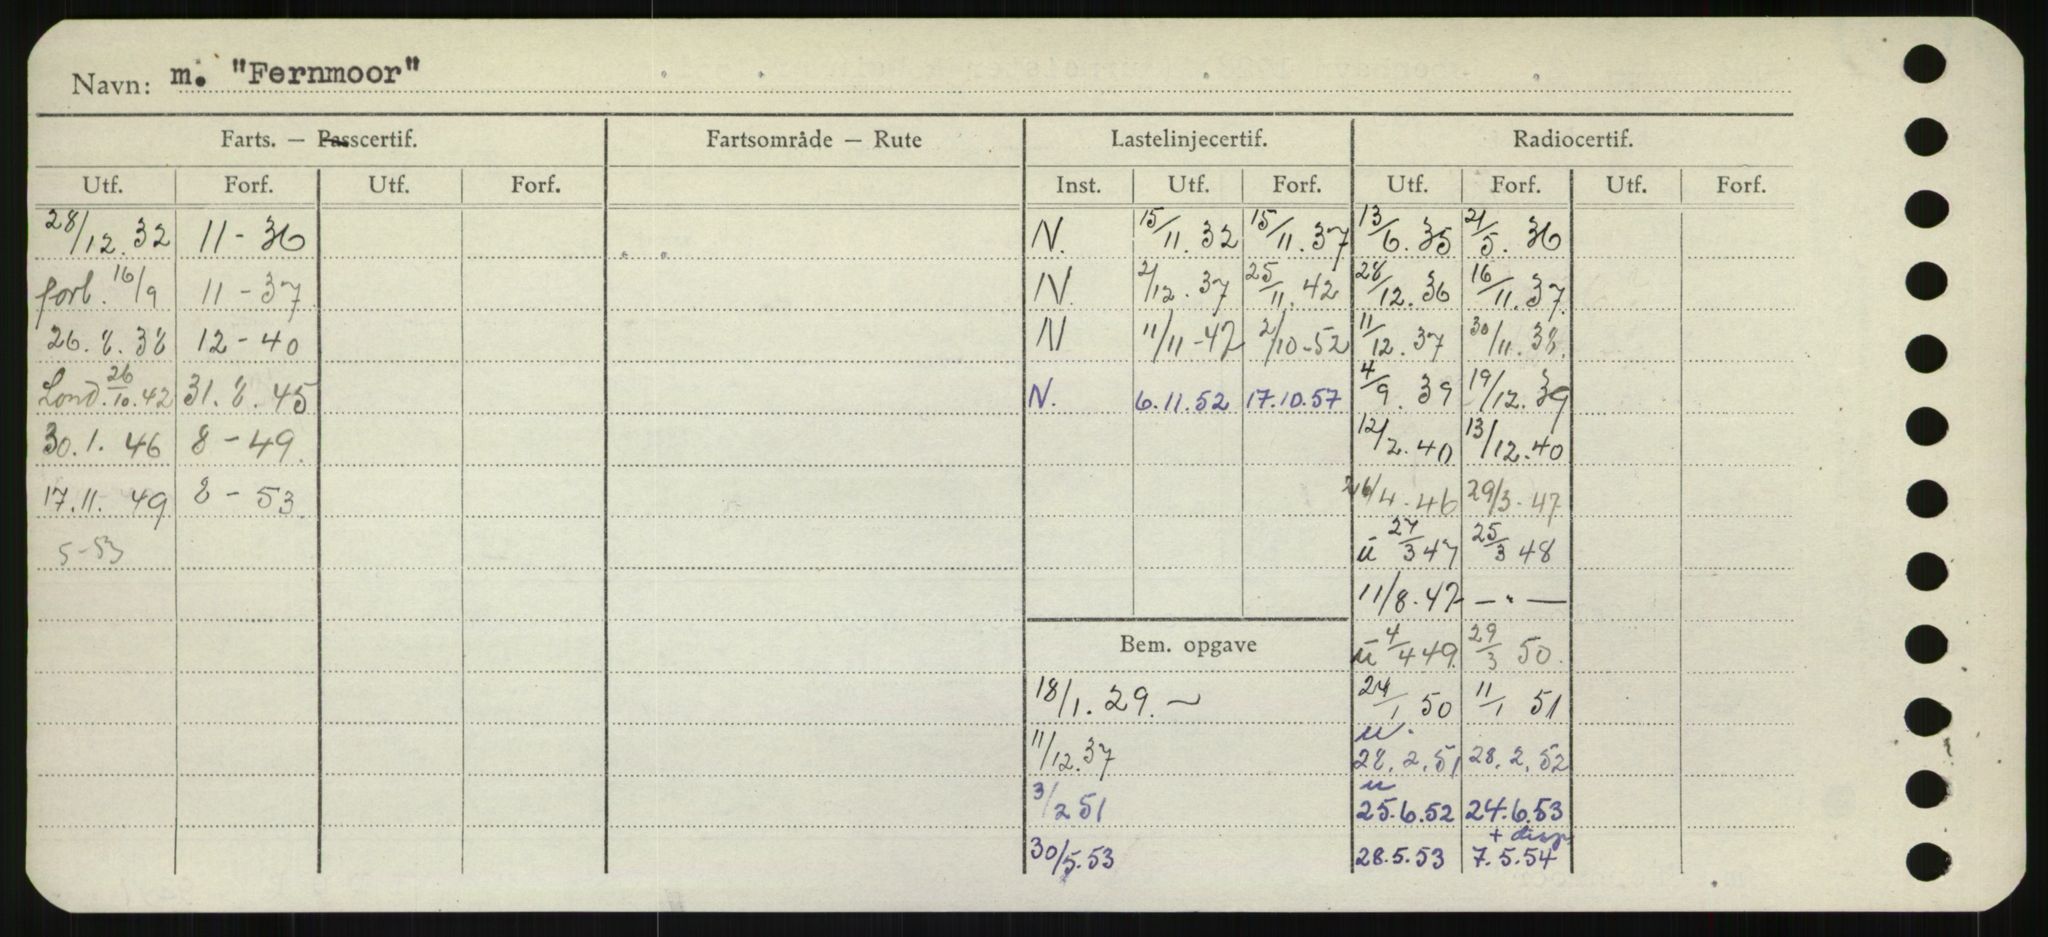 Navn: m. "Fernmoor"
Farts. — Passcertif. Fartsområde — Rute Lastelinjecertif. Radiocertif.
Utf. Forf. Utf. Forf. Inst. Utf. Forf. Utf. Forf. Utf. Forf.
28/12.32 11-36 N. 15/11.32 15/11.37 13/6.35 21/5.36
forl. 16/9 11-37 N. 2/12.37 25/11.42 28/12.36 16/11.37
26.8.38 12-40 N 11/11-47 2/10-52 11/12.37 30/11.38.
Lond. 26/10.42 31.8.45 N. 6.11.52 17.10.57 4/9.39 19/12.39
30.1.46 8-49. 12/2.40 13/12.40
17.11.49 8-53 26/4.46 29/3-47
5-53 u 27/3 47 25/3 48
11/8.47 — " —
Bem. opgave u 4/4 49. 29/3 50.
18/1.29. ~ 24/1 50 11/1 51
11/12.37 u. 28.2.51 28.2.52
3/2 51 u 25.6.52 24.6.53
+ disp
30/5.53 28.5.53 7.5.54